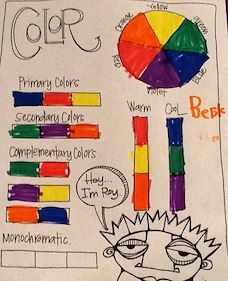 COLOR
Yellow
Orange
Green
Red
Blue
Violet
Primary Colors
Secondary Colors
Complementary Colors
Monochromatic
Warm
Cool
Hey...
I'm Roy.